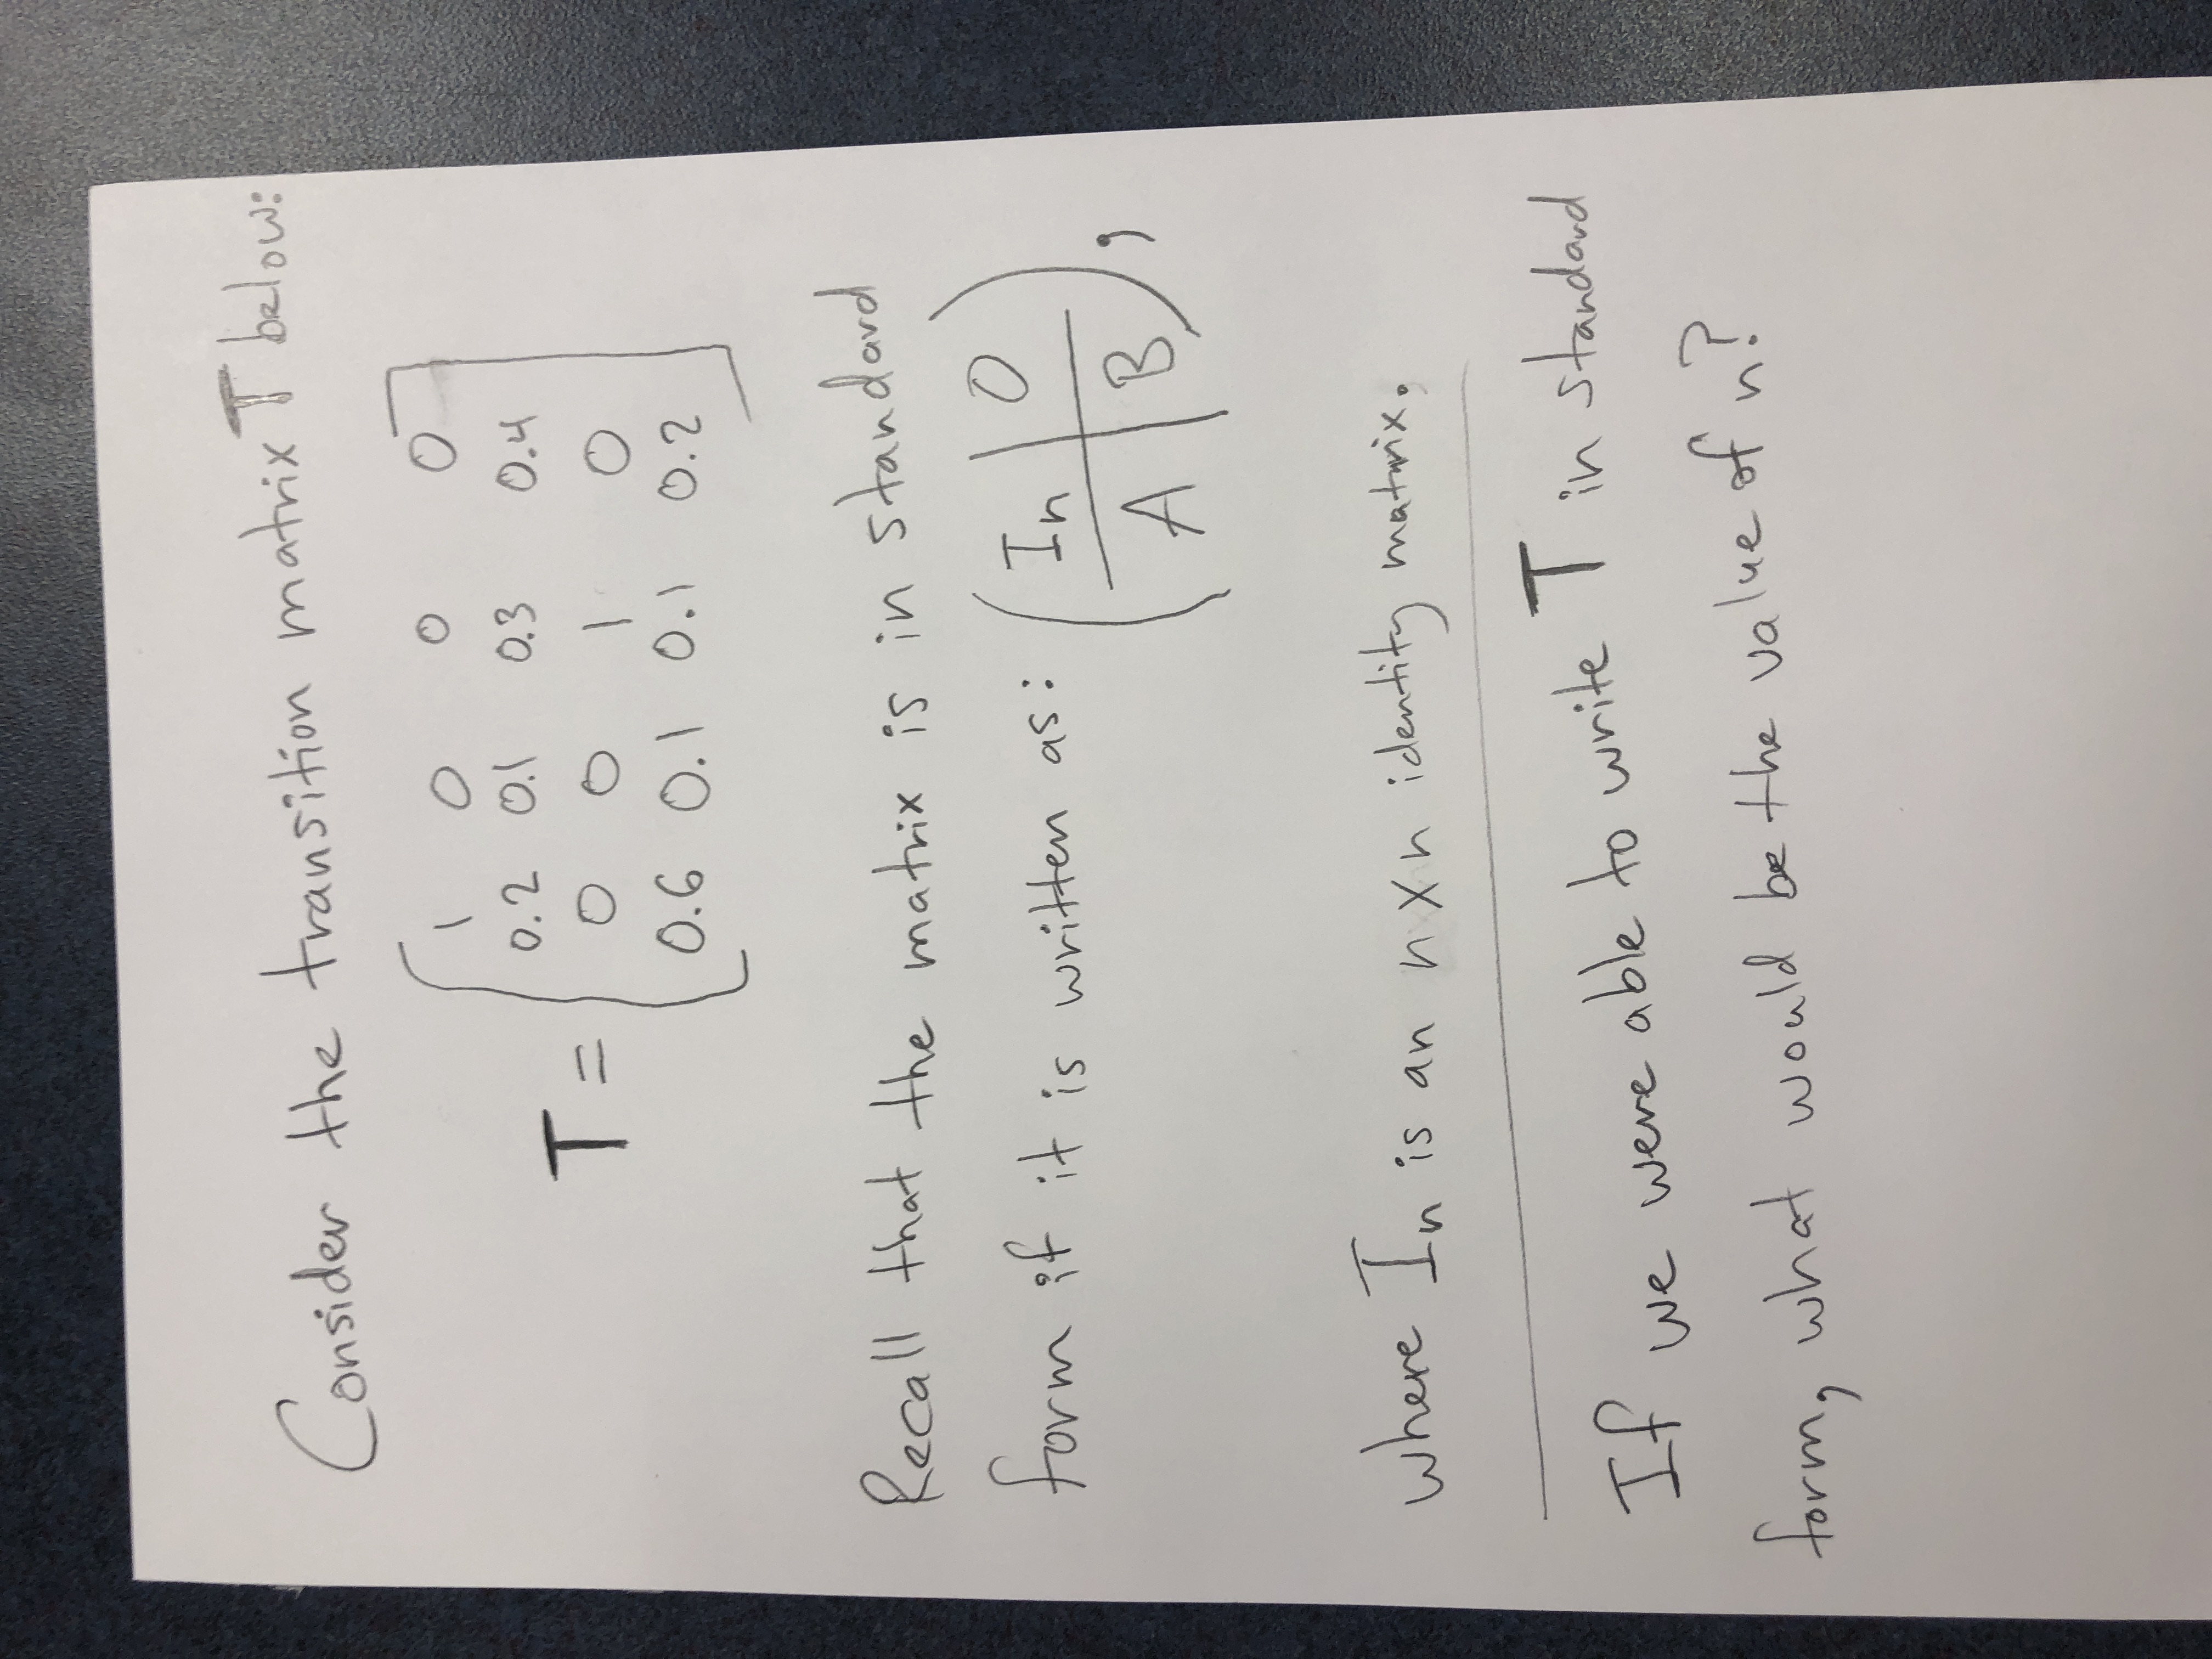 Consider the transition matrix T below:
1 0 0 0
0.2 0.1 0.3 0.4
T =
0 0 1 0
0.6 0.1 0.1 0.2
Recall that the matrix is in standard
form if it is written as: ( In | O
A | B ),
where In is an n x n identity matrix.
If we were able to write T in standard
form, what would be the value of n?